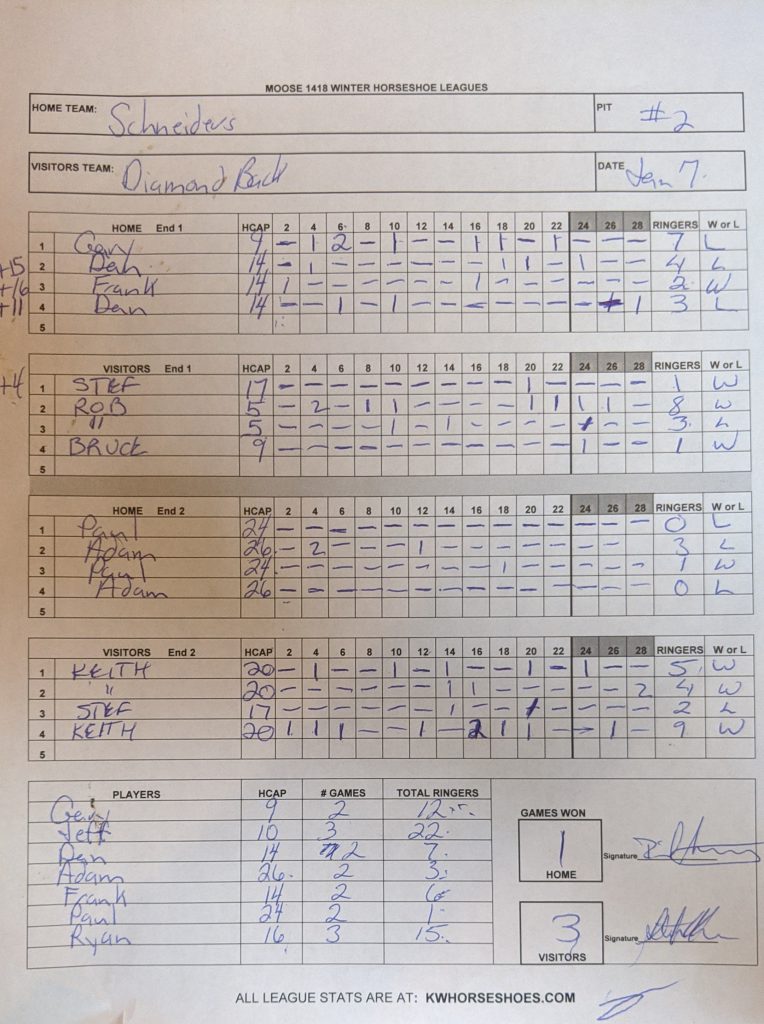 MOOSE 1418 WINTER HORSESHOE LEAGUES
HOME TEAM: Schneiders PIT #2
VISITORS TEAM: Diamond Back DATE Jan 7.
HOME End 1 HCAP 2 4 6 8 10 12 14 16 18 20 22 24 26 28 RINGERS W or L
1 Gary 9 - 1 2 - 1 - - 1 1 - 1 - - - 7 L
+15 2 Dan 14 - 1 - - - - - - 1 1 - 1 - - 4 L
+16 3 Frank 14 1 - - - - - - 1 - - - - - - 2 W
+11 4 Dan 14 - - 1 - 1 - - - - - - - + 1 3 L
5
VISITORS End 1 HCAP 2 4 6 8 10 12 14 16 18 20 22 24 26 28 RINGERS W or L
+4 1 STEF 17 - - - - - - - - - 1 - - - - 1 W
2 ROB 5 - 2 - 1 1 - - - - 1 1 1 1 - 8 W
3 " 5 - - - - 1 - 1 - - - - 1 - - 3 L
4 BRUCE 9 - - - - - - - - - - - 1 - - 1 W
5
HOME End 2 HCAP 2 4 6 8 10 12 14 16 18 20 22 24 26 28 RINGERS W or L
1 Paul 24 - - - - - - - - - - - - - - 0 L
2 Adam 26 - 2 - - - 1 - - - - - - - 3 L
3 Paul 24 - - - - - - - - 1 - - - - - 1 W
4 Adam 26 - - - - - - - - - - - - - - 0 L
5
VISITORS End 2 HCAP 2 4 6 8 10 12 14 16 18 20 22 24 26 28 RINGERS W or L
1 KEITH 20 - 1 - - 1 - 1 - - 1 - 1 - - 5 W
2 " 20 - - - - - - 1 1 - - - - - 2 4 W
3 STEF 17 - - - - - - 1 - - 1 - - - - 2 L
4 KEITH 20 1 1 1 - - 1 - 2 1 1 - - 1 - 9 W
5
PLAYERS HCAP # GAMES TOTAL RINGERS
Gary 9 2 12
Jeff 10 3 22
Dan 14 2 7
Adam 26 2 3
Frank 14 2 6
Paul 24 2 1
Ryan 16 3 15
GAMES WON
1 Signature
HOME
3 Signature
VISITORS
ALL LEAGUE STATS ARE AT: KWHORSESHOES.COM